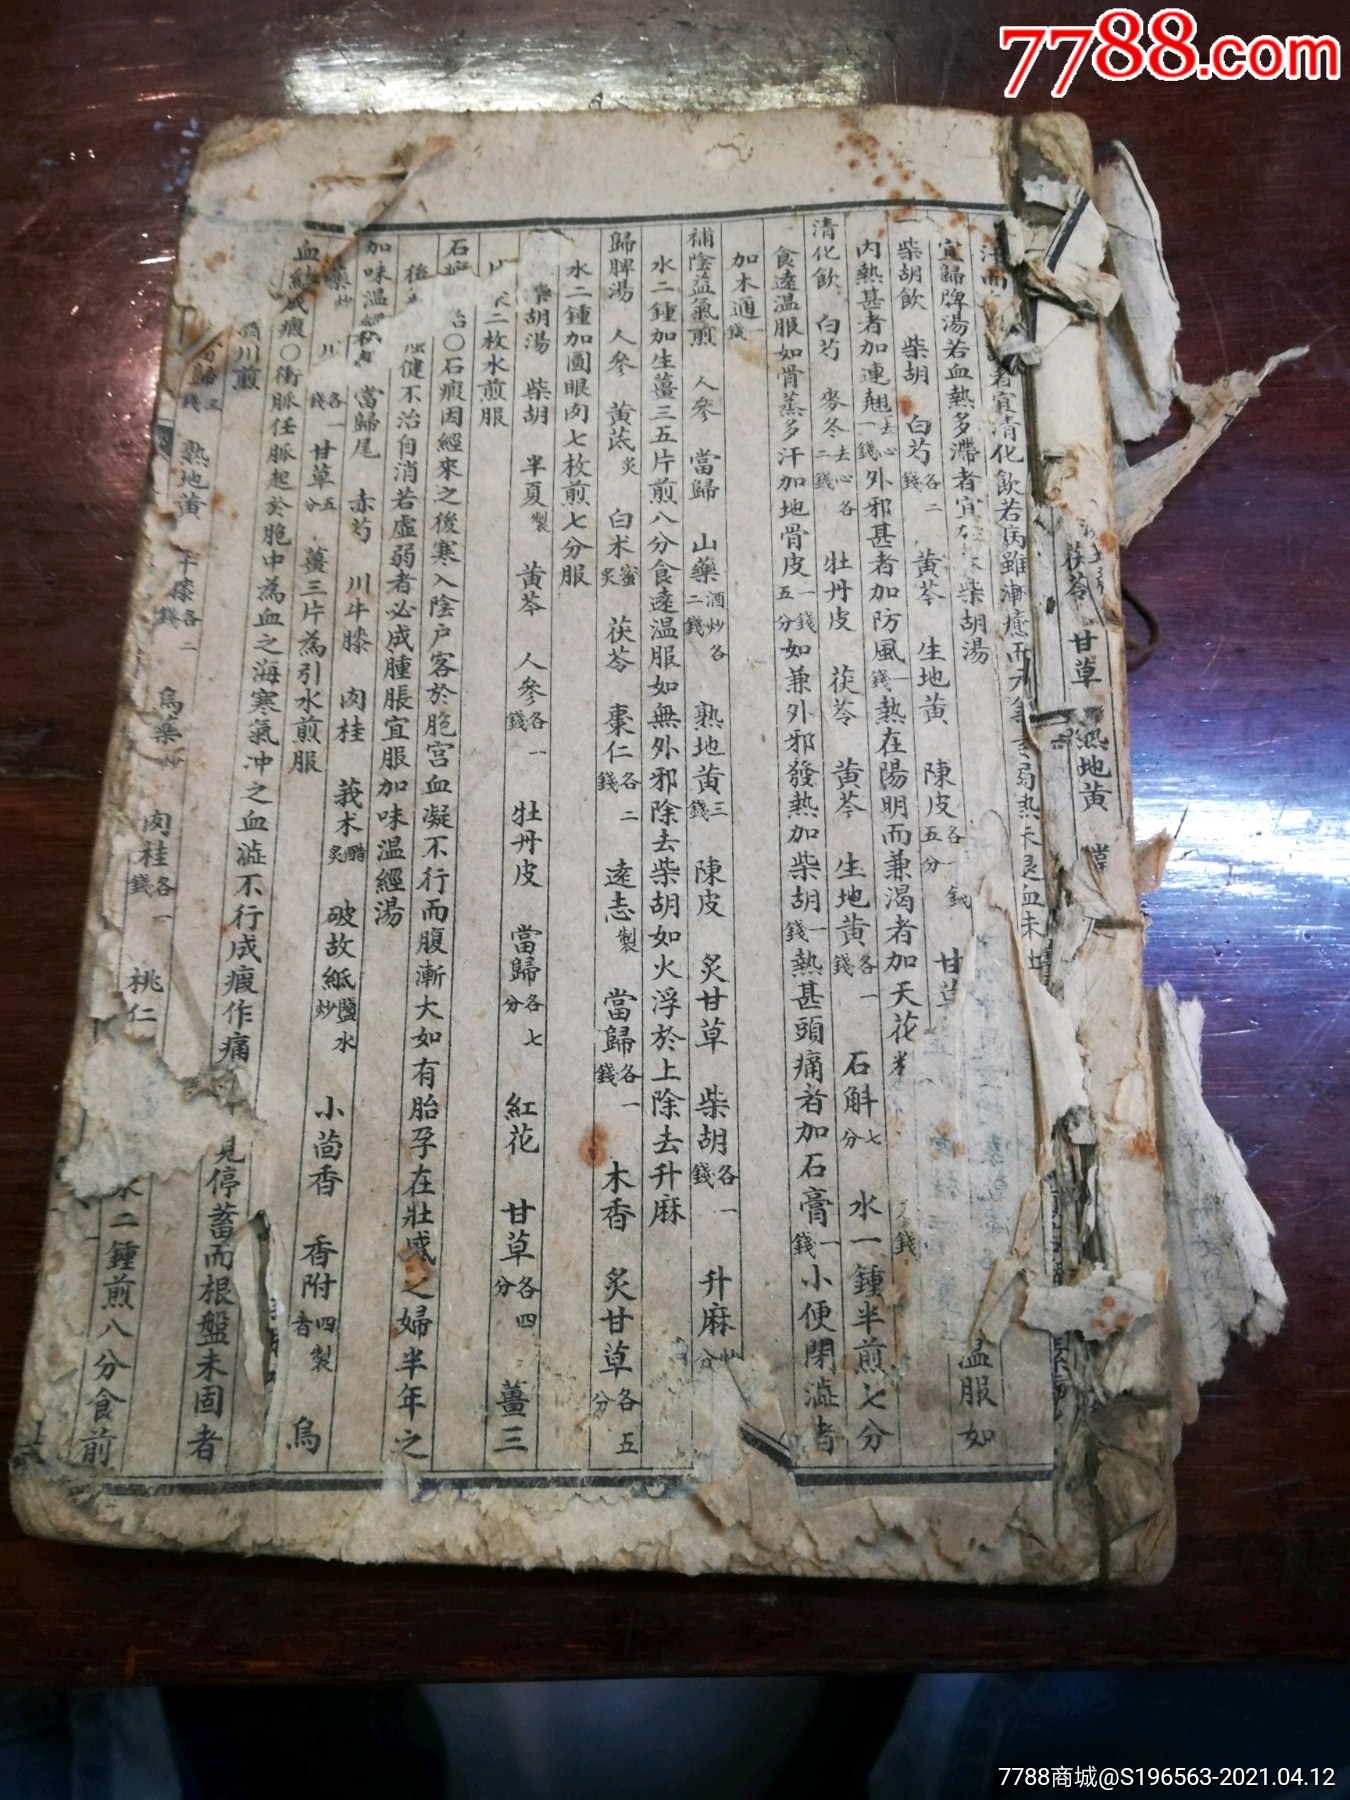 7788.com
茯苓 甘草 熟地黃
者宜清化飲若病雖漸癒而元氣素弱熱未退血未
宜歸脾湯若血熱多滯者宜 柴胡湯
柴胡飲 柴胡 白芍各二錢 黃芩 生地黃 陳皮各一錢五分 甘草 溫服如
內熱甚者加連翹去心一錢外邪甚者加防風一錢熱在陽明而兼渴者加天花 錢
清化飲 白芍 麥冬去心各二錢 牡丹皮 茯苓 黃芩 生地黃各一錢 石斛七分 水一鍾半煎七分
食遠溫服如骨蒸多汗加地骨皮一錢五分如兼外邪發熱加柴胡一錢熱甚頭痛者加石膏一錢小便閉澁者
加木通一錢
補陰益氣煎 人參 當歸 山藥酒炒各二錢 熟地黃三錢 陳皮 炙甘草 柴胡各一錢 升麻 分
水二鍾加生薑三五片煎八分食遠溫服如無外邪除去柴胡如火浮於上除去升麻
歸脾湯 人參 黃芪炙 白朮蜜炙 茯苓 棗仁各二錢 遠志製 當歸各一錢 木香 炙甘草各五分
水二鍾加圓眼肉七枚煎七分服
柴胡湯 柴胡 半夏製 黃芩 人參各一錢 牡丹皮 當歸各七分 紅花 甘草各四分 薑三
二枚水煎服
石 〇石瘕因經來之後寒入陰戶客於胞宮血凝不行而腹漸大如有胎孕在壯盛之婦半年之
後 健不治自消若虛弱者必成腫脹宜服加味溫經湯
加味溫經 當歸尾 赤芍 川牛膝 肉桂 莪朮醋炙 破故紙鹽水炒 小茴香 香附四製者 烏
藥炒 川 各一錢 甘草五分 薑三片為引水煎服
血 成瘕〇衝脈任脈起於胞中為血之海寒氣冲之血澁不行成瘕作痛 見停蓄而根盤未固者
川煎
歸三錢 熟地黃 牛膝各二錢 烏藥炒 肉桂各一錢 桃仁 水二鍾煎八分食前
7788商城@S196563-2021.04.12